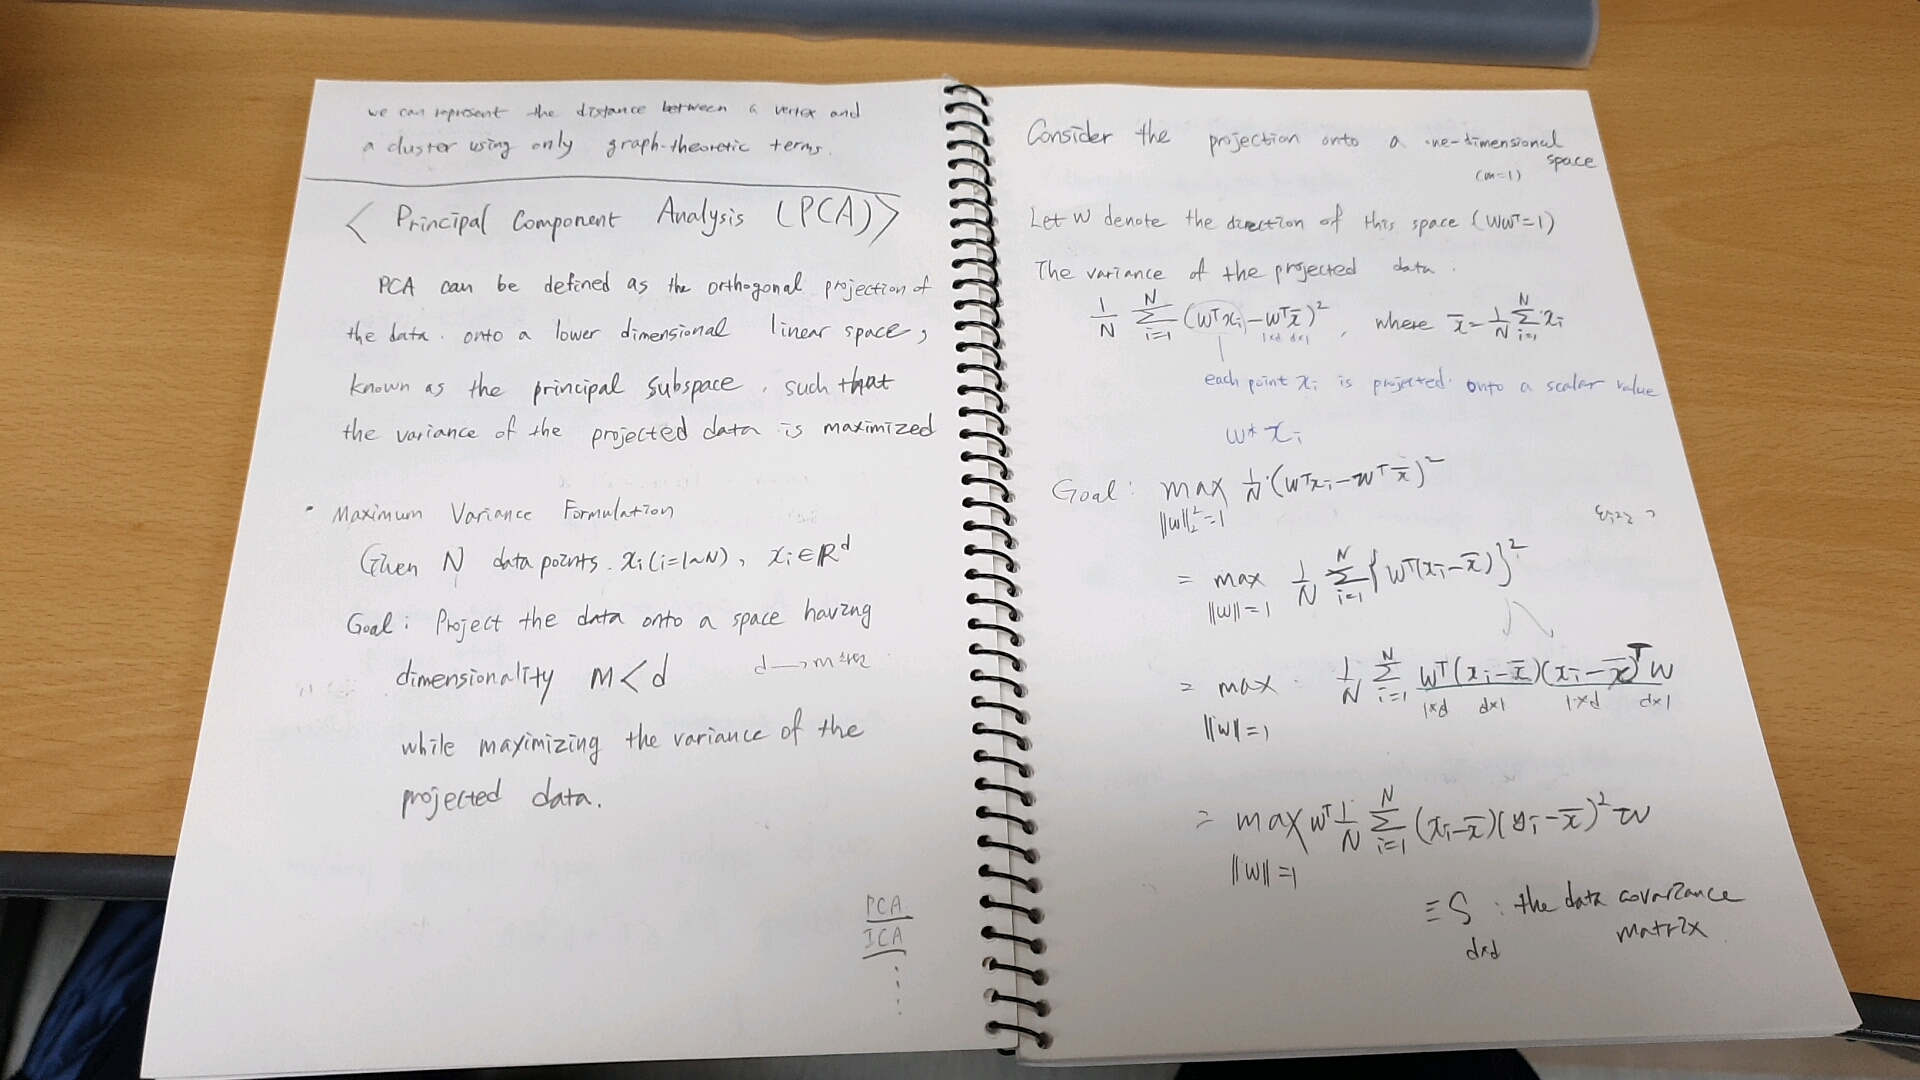 we can represent the distance between a vertex and
a cluster using only graph-theoretic terms.
< Principal Component Analysis (PCA)>
PCA can be defined as the orthogonal projection of
the data. onto a lower dimensional linear space,
known as the principal subspace, such that
the variance of the projected data is maximized
• Maximum Variance Formulation
Given N data points. xᵢ(i=1~N), xᵢ∈ℝᵈ
Goal : Project the data onto a space having
dimensionality m<d
d→m
while maximizing the variance of the
projected data.
PCA
ICA
Consider the projection onto a one-dimensional
space
(m=1)
Let w denote the direction of this space (wwᵀ=1)
The variance of the projected data.
1/N Σᵢ₌₁ᴺ (wᵀxᵢ-wᵀx̄)², where x̄=1/N Σᵢ₌₁ᴺ xᵢ
1xd dx1
each point xᵢ is projected onto a scalar value
w* xᵢ
Goal : max 1/N (wᵀxᵢ-wᵀx̄)²
||w||₂²=1
= max 1/N Σᵢ₌₁ᴺ {wᵀ(xᵢ-x̄)}²
||w||=1
= max 1/N Σᵢ₌₁ᴺ wᵀ(xᵢ-x̄)(xᵢ-x̄)ᵀw
1xd dx1 1xd dx1
||w||=1
= max wᵀ 1/N Σᵢ₌₁ᴺ (xᵢ-x̄)(yᵢ-x̄)² w
||w||=1
≡S : the data covariance
matrix
dxd